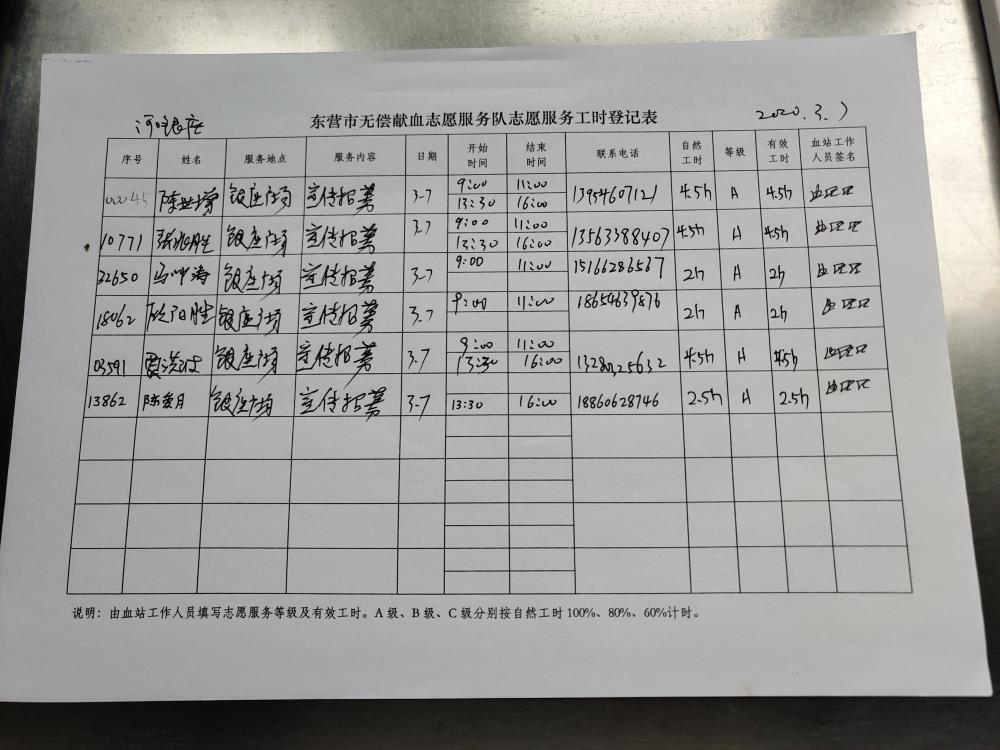 东营市无偿献血志愿服务队志愿服务工时登记表
河口银座 2020.3.7
序号 姓名 服务地点 服务内容 日期 开始时间 结束时间 联系电话 自然工时 等级 有效工时 血站工作人员签名
00045 陈世增 银座广场 宣传招募 3-7 9:00 11:00 13:30 16:00 13954607121 4.5h A 4.5h
10771 张兆胜 银座广场 宣传招募 3.7 9:00 11:00 13:30 16:00 13563388407 4.5h A 4.5h
32650 银座广场 宣传招募 3-7 9:00 11:00 15166286567 2h A 2h
18062 欧阳胜 银座广场 宣传招募 3.7 9:00 11:00 18654639876 2h A 2h
03591 银座广场 宣传招募 3.7 9:00 11:00 13:30 16:00 13280325632 4.5h A 4.5h
13862 陈爱月 银座广场 宣传招募 3-7 13:30 16:00 18860628746 2.5h A 2.5h
说明：由血站工作人员填写志愿服务等级及有效工时。A级、B级、C级分别按自然工时100%、80%、60%计时。